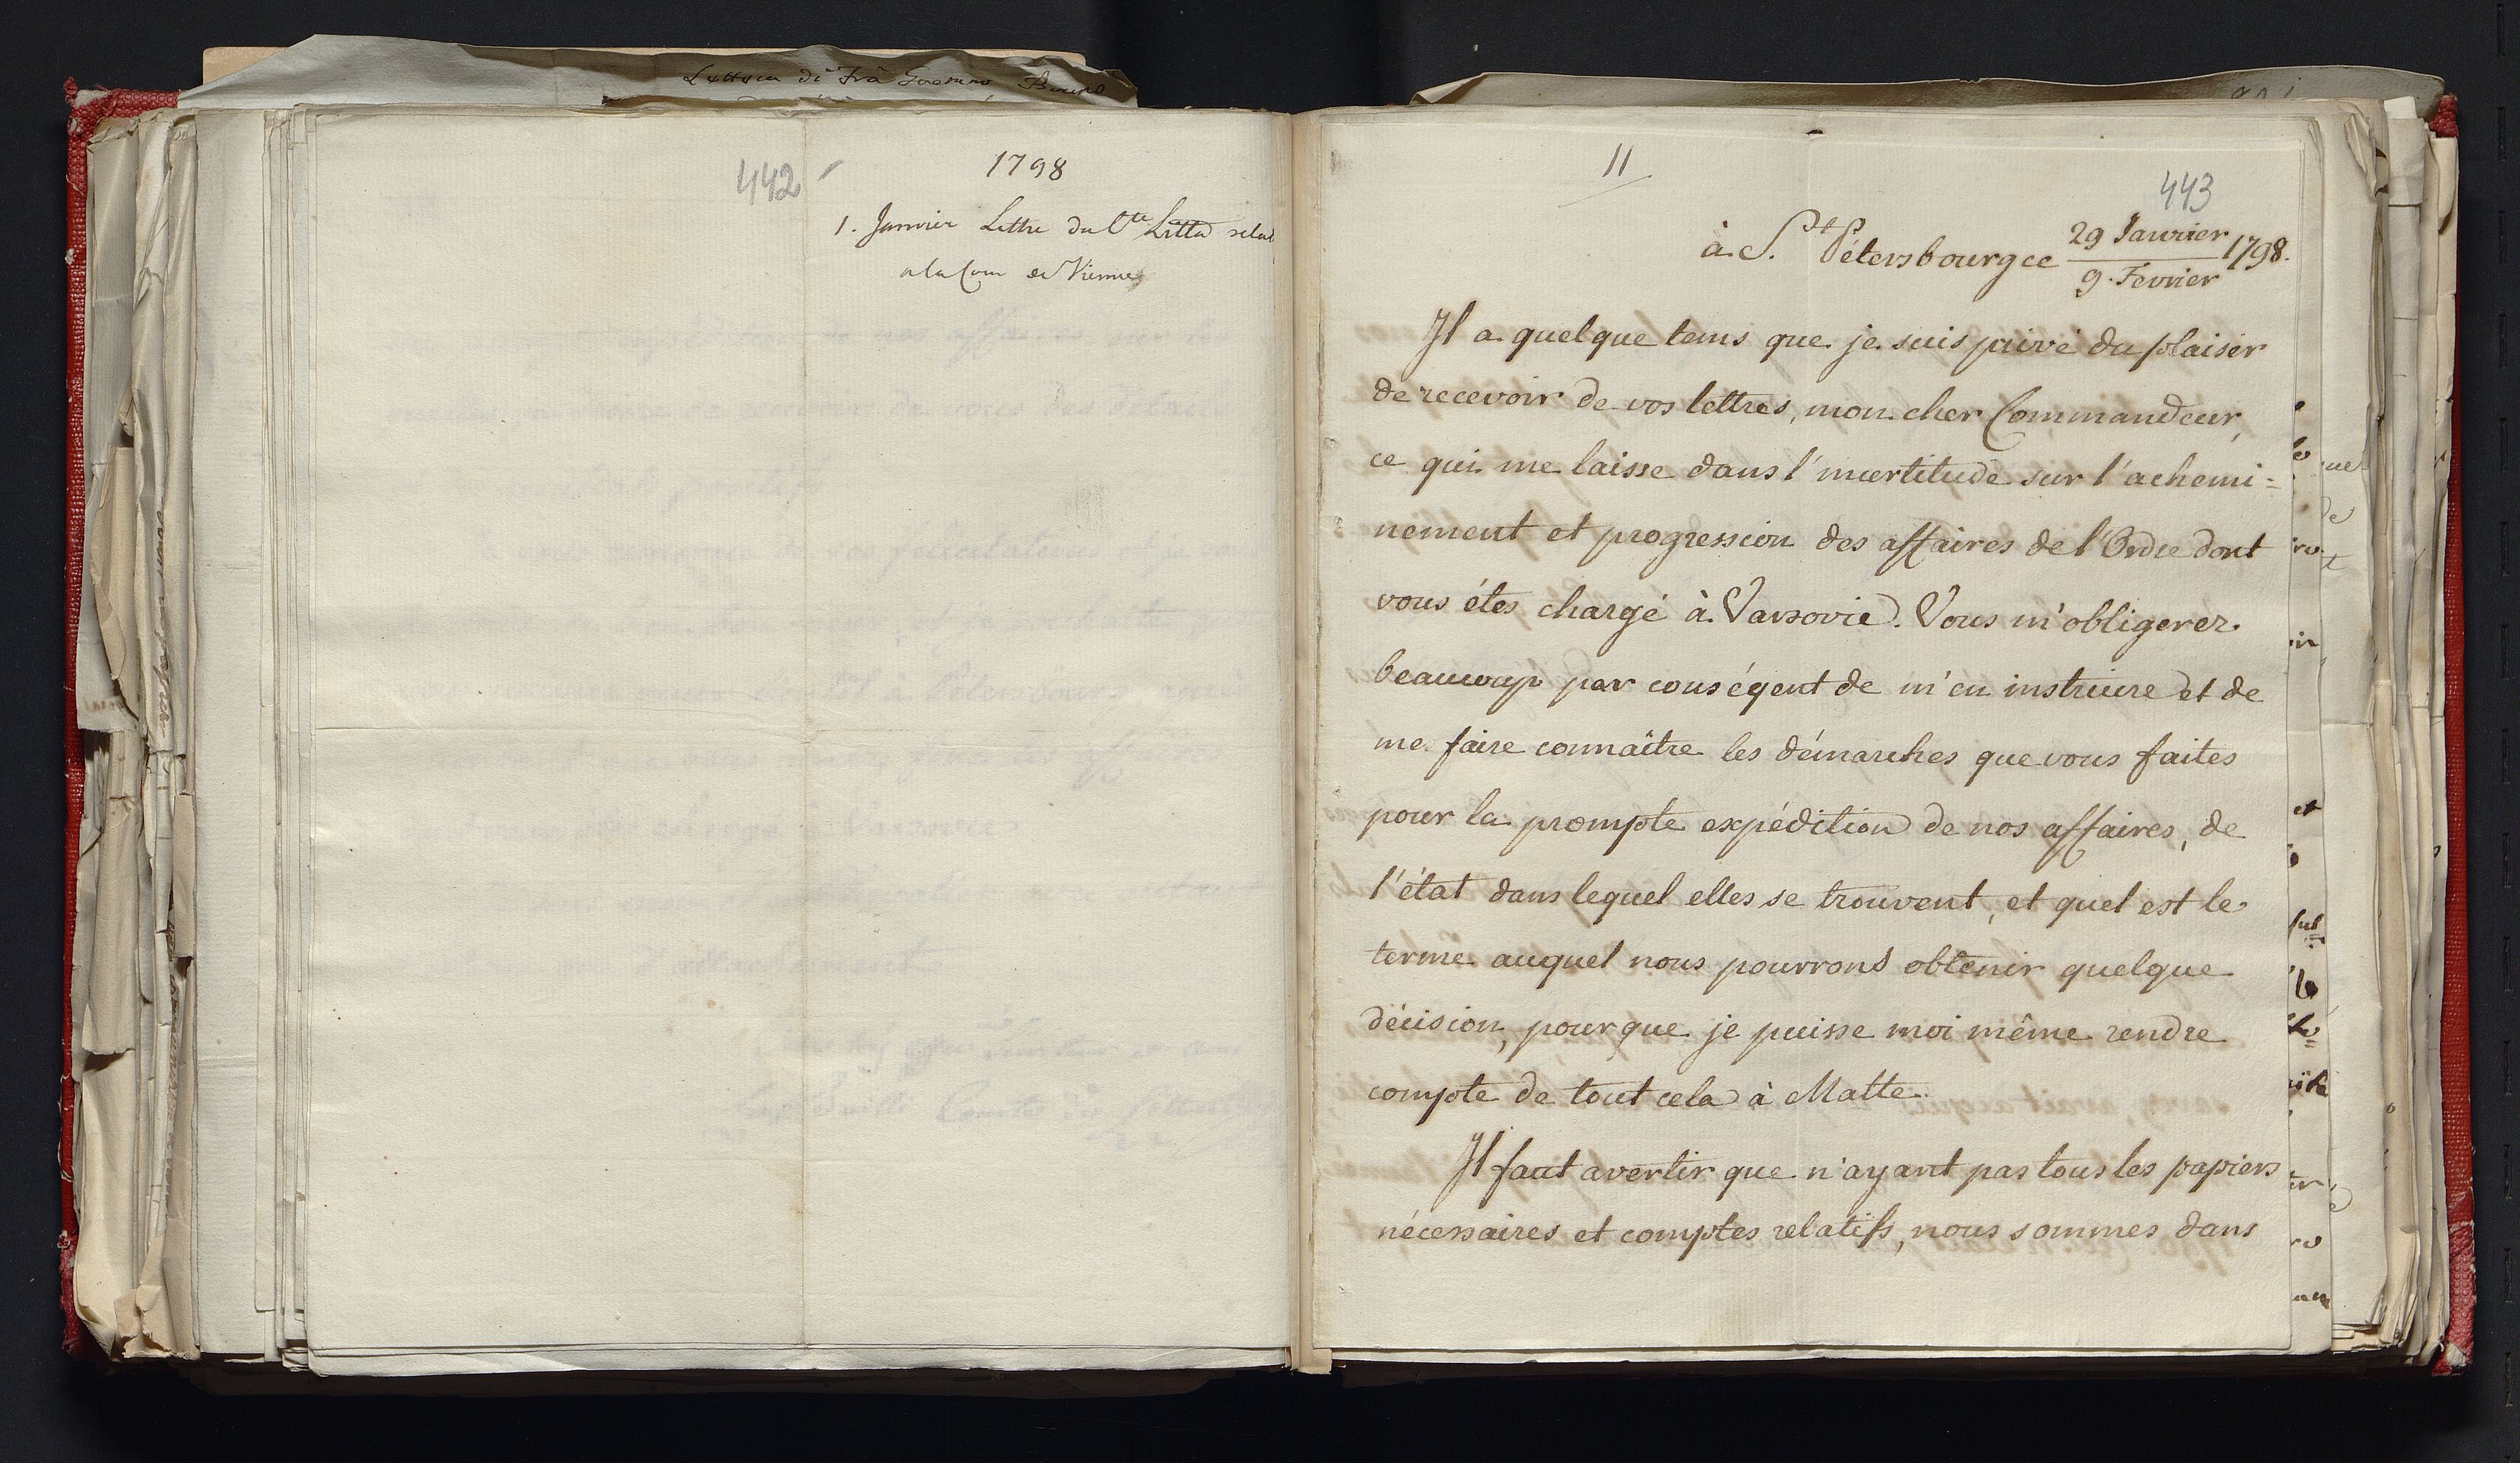 Lettera di Frà
442
1798
1. Janvier Lettre du Cte Litta relat
a la Cour de Vienne
11
443
à St Pétersbourg ce 29 Janvier / 9 Fevrier 1798.
Il a quelque tems que je suis privé du plaisir
de recevoir de vos lettres, mon cher Commandeur,
ce qui me laisse dans l'incertitude sur l'achemi=
nement et progression des affaires de l'Ordre dont
vous étes chargé à Varsovie. Vous m'obligerez
beaucoup par conséqent de m'en instruire et de
me faire connaître les démarches que vous faites
pour la prompte expédition de nos affaires, de
l'état dans lequel elles se trouvent, et quel est le
terme auquel nous pourrons obtenir quelque
décision, pour que je puisse moi même rendre
compte de tout cela à Malte.
Il faut avertir que n'ayant pas tous les papiers
nécessaires et comptes relatifs, nous sommes dans